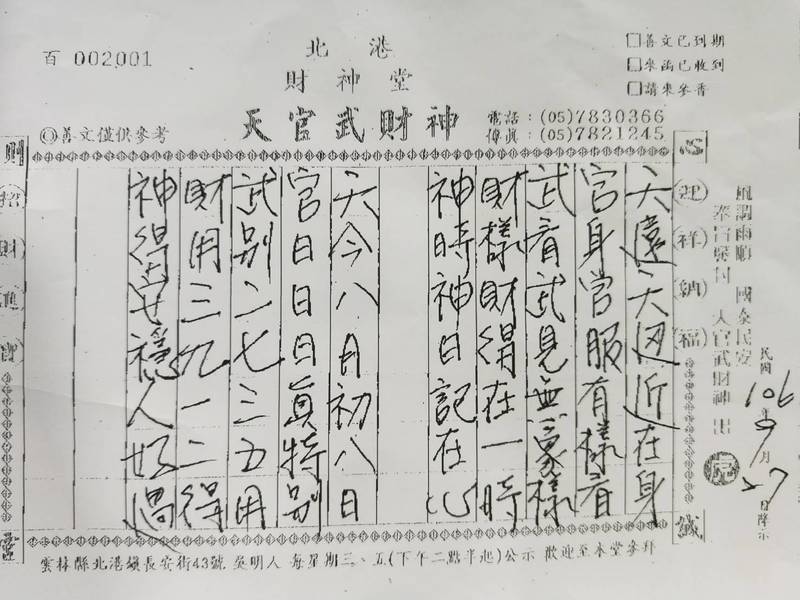 百 002001
北港
財神堂
天官武財神
◎善文僅供參考
□善文已到期
□來函已收到
□請來參香
電話：(05)7830366
傳真：(05)7821245
心
迎祥納福
誠
則
招財進寶
靈
風調雨順 國泰民安
天官武財神 出
民國106年9月27日降示
天遠天邊近在身
官身官服有樣看
武看武見無象樣
財樣財得在一時
神時神日記在心
天今八月初八日
官日日日真特別
武別二七三五用
財用三九一二得
神得安穩人好過
雲林縣北港鎮長安街43號 吳明人 每星期三、五(下午二點半起)公示 歡迎至本堂參拜